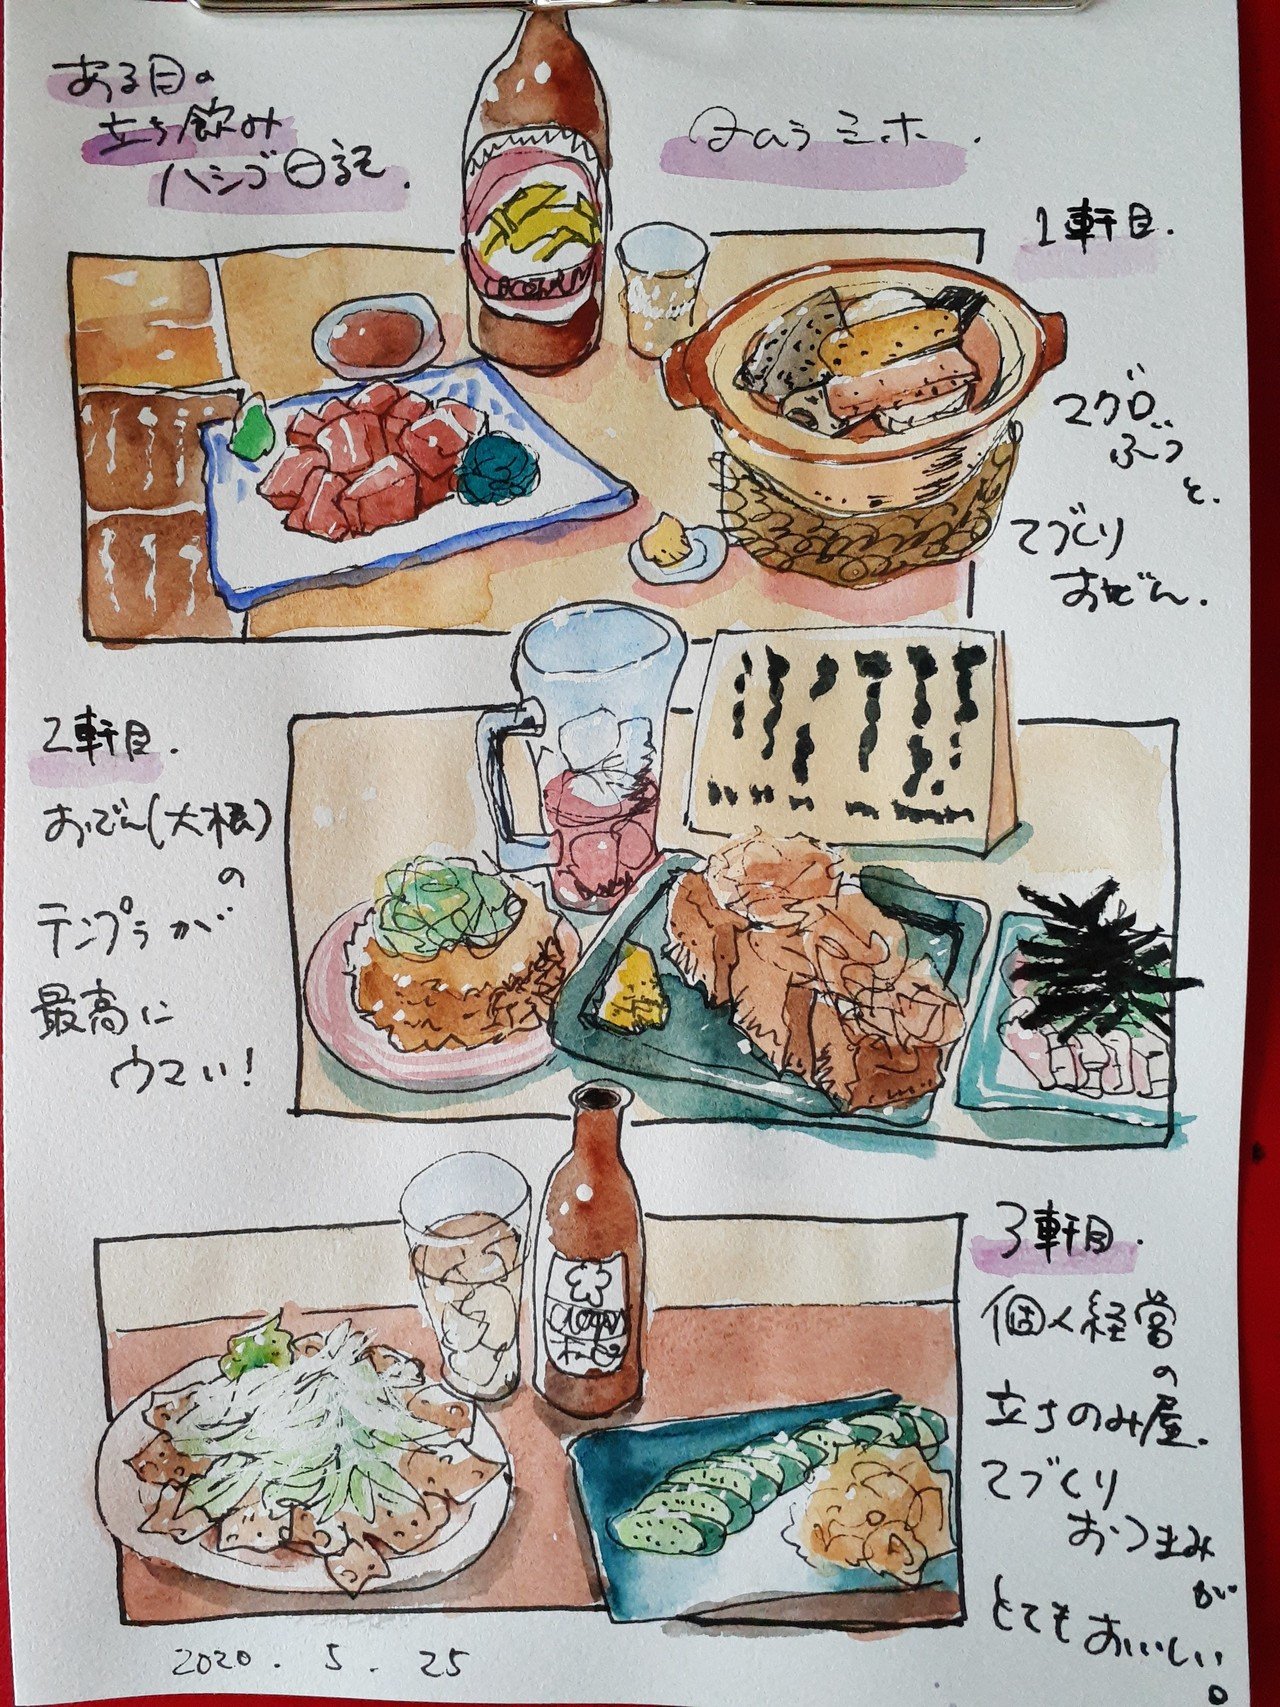 ある日の
立ち飲み
ハシゴ日記.
1軒目.
マグロ
ぶつ
と.
てづくり
おでん.
2軒目.
おでん(大根)
の
テンプラが
最高に
ウマい!
3軒目.
個人経営
の
立ちのみ屋.
てづくり
おつまみ
が
とてもおいしい。
2020. 5. 25